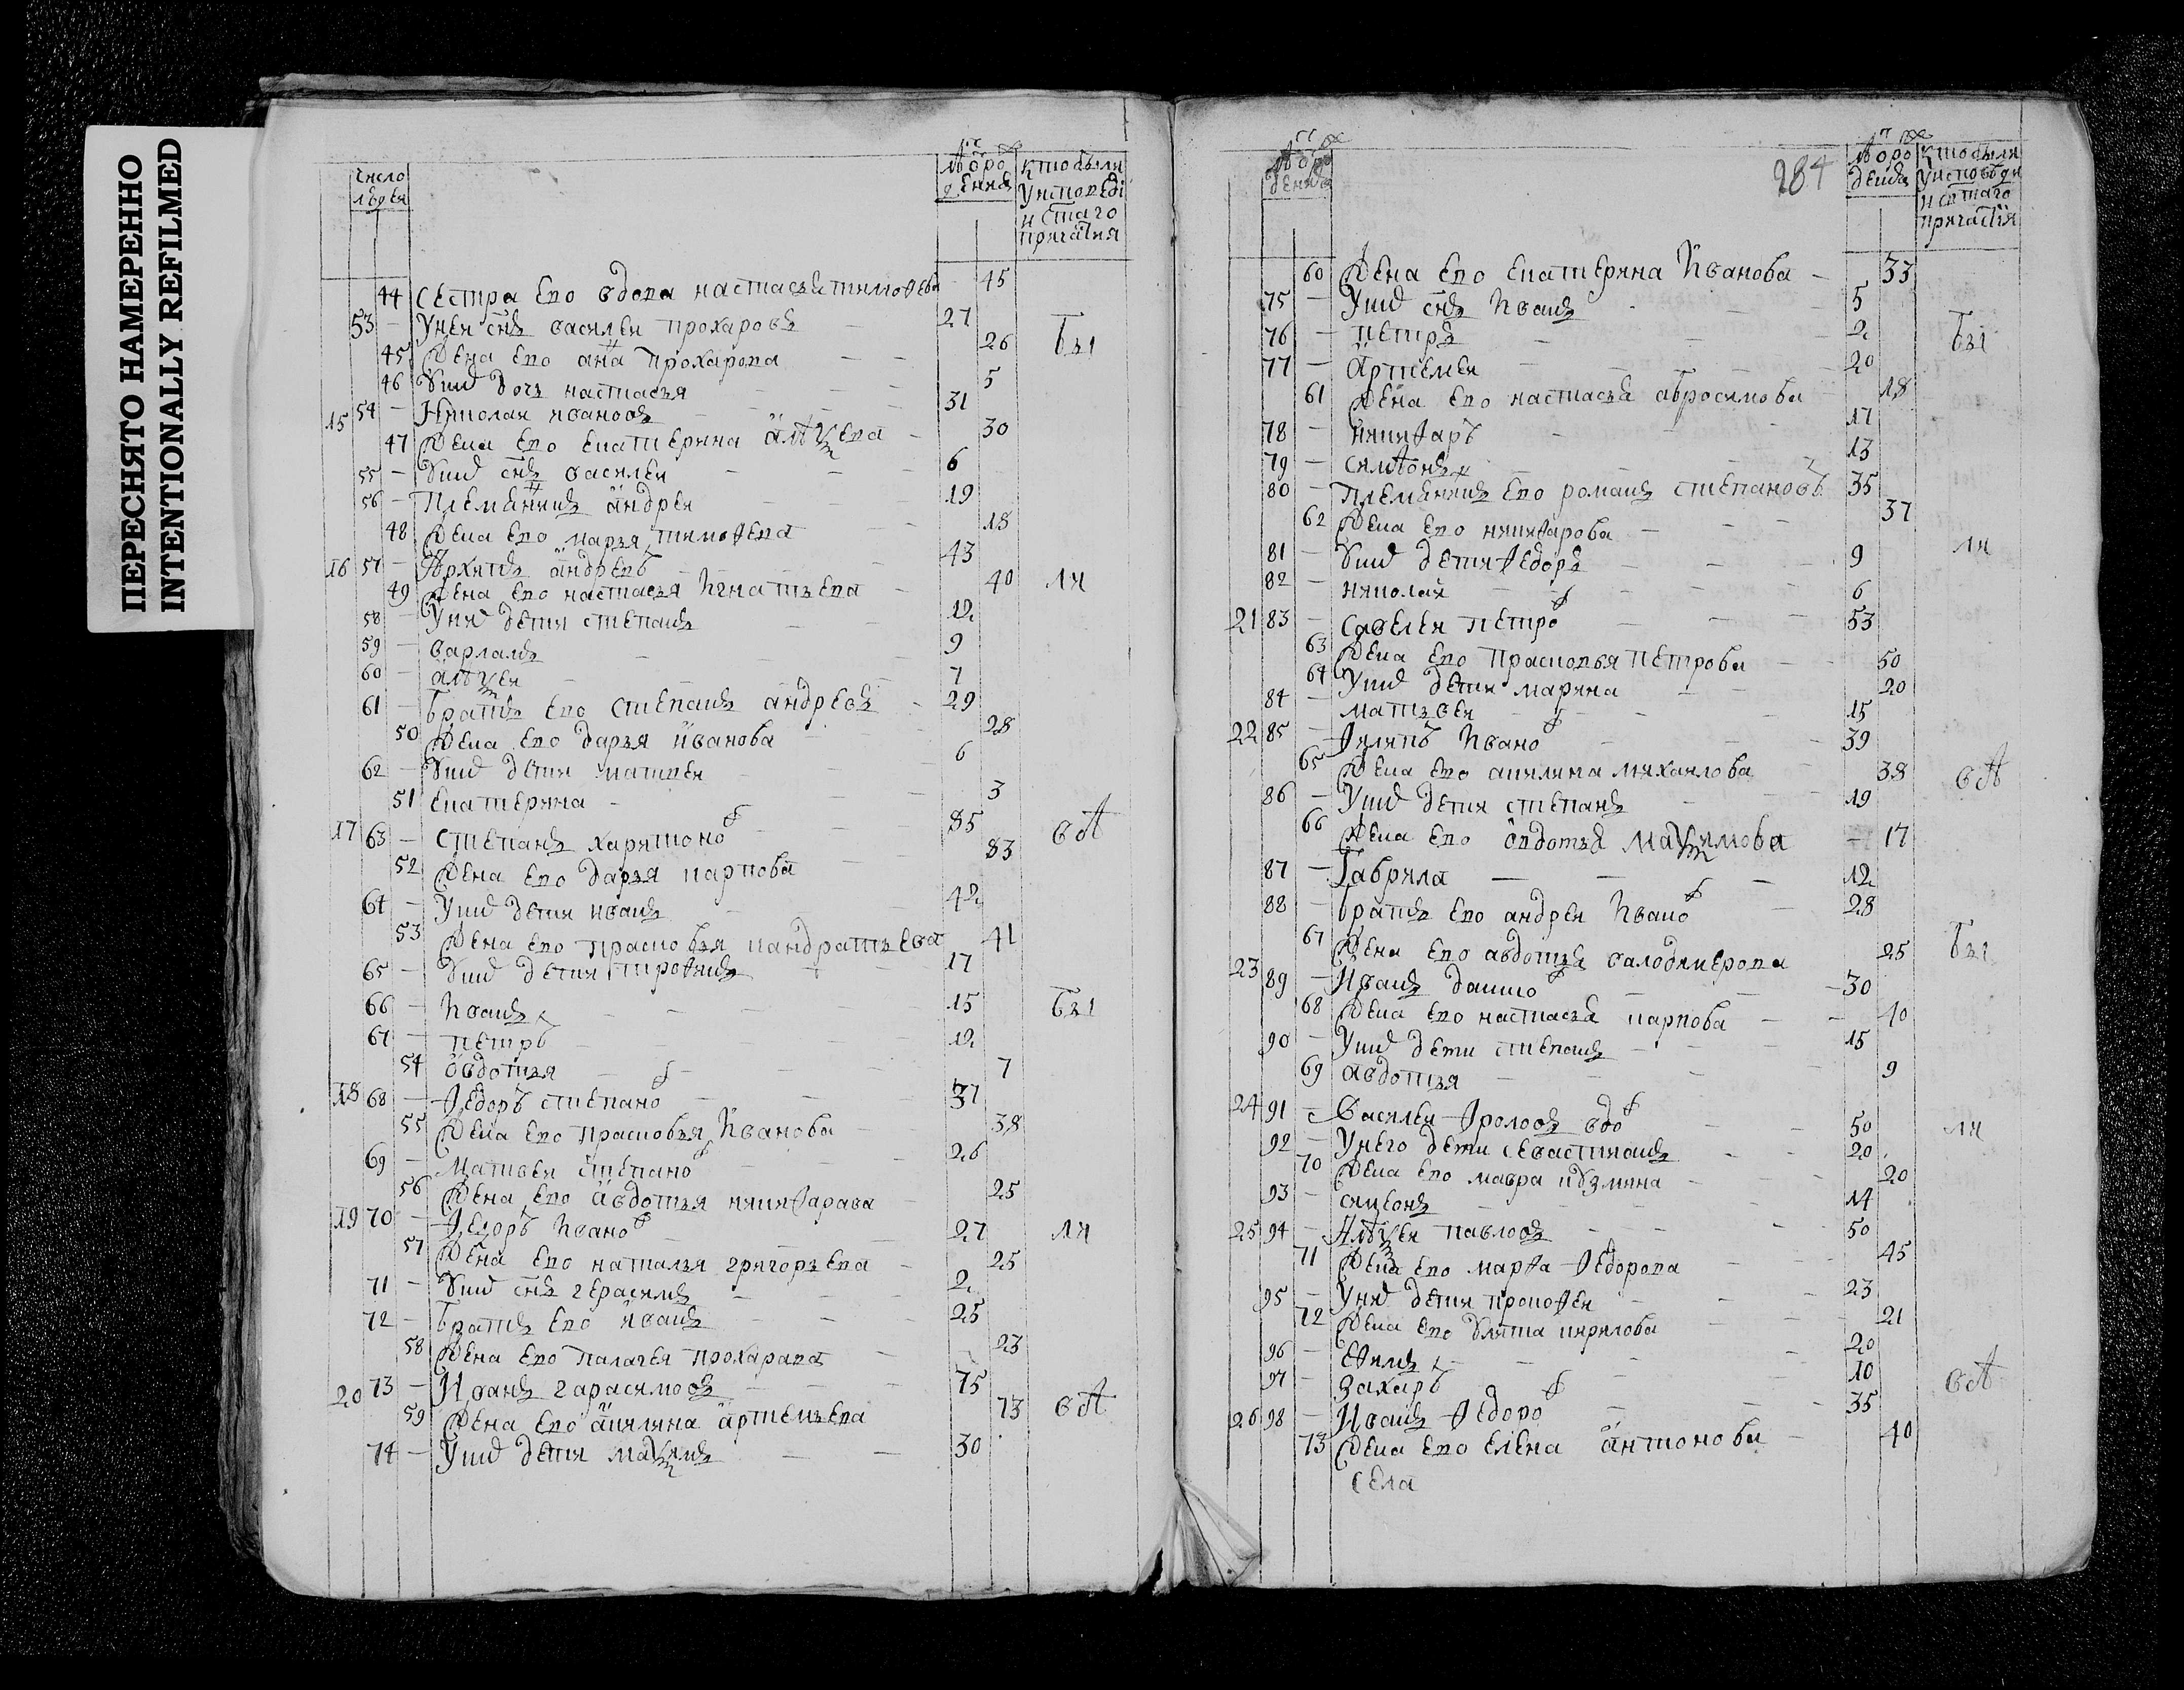 ПЕРЕСНЯТО НАМЕРЕННО
INTENTIONALLY REFILMED
число
людеи
кто были
у исповеді
и стаго
причастия
44 сестра его вдова настасья тимофева 45
53 У неи снъ василеи прохаровъ 27
45 Жена его анна прохарова 26
46 У нихъ дочь настасья 5
15 54 Николаи ивановъ 31
47 Жена его екатерина алексеева 30
55 У нихъ снъ василеи 6
56 Племянникъ андреи 19
48 Жена его марья тимофева 18
16 57 Архипъ андревъ 43
49 Жена его настасья игнатьева 40
58 У нихъ дети степанъ 12
59 варламъ 9
60 алексеи 7
61 братъ его степанъ андревъ 29
50 Жена его дарья иванова 28
62 У нихъ дети матвеи 6
51 екатерина 3
17 63 степанъ харитоновъ 85
52 Жена его дарья карпова 83
64 У нихъ дети иванъ 42
53 Жена его прасковья кандратьева 41
65 У нихъ дети трофимъ 17
66 иванъ 15
67 петръ 12
54 авдотья 7
18 68 федоръ степановъ 37
55 Жена его прасковья иванова 38
69 матвеи степановъ 26
56 Жена его авдотья никифарава 25
19 70 федоръ ивановъ 27
57 Жена его наталья григорьева 25
71 У нихъ снъ герасимъ 2
72 братъ его иванъ 25
58 Жена его палагея прохарава 23
20 73 Иванъ гарасимовъ 75
59 Жена его акилина артемьева 73
74 У нихъ дети максимъ 30
бы
ли
всѣ
бы
ли
всѣ
284
кто были
у исповеди
и стаго
причастия
60 Жена его екатерина иванова 33
75 У нихъ снъ иванъ 5
76 петръ 2
77 артемеи 20
61 Жена его настасья абросимова 18
78 никифаръ 17
79 симионъ 13
80 племянникъ его романъ степановъ 35
62 Жена его никифарова 37
81 У нихъ дети федоръ 9
82 николаи 6
21 83 савелеи петровъ 53
63 Жена его прасковья петрова 50
64 У нихъ дети марина 20
84 матьвеи 15
22 85 филипъ ивановъ 39
65 Жена его акилина михаилова 38
86 У нихъ дети степанъ 19
66 Жена его авдотья максимова 17
87 Гаврила 12
88 братъ его андреи ивановъ 28
67 Жена его авдотья валодимерова 25
23 89 Иванъ 30
68 Жена его настасья карпова 40
90 У нихъ дети степанъ 15
69 авдотья 9
24 91 Василеи фроловъ вдовъ 50
92 У него дети севастиянъ 20
70 Жена его мавра кузмина 20
93 симеонъ 14
25 94 Алексеи павловъ 50
71 Жена его марфа федорова 45
95 У нихъ дети прокофеи 23
72 Жена его улита кирилова 21
96 ефимъ 20
97 захаръ 10
26 98 Иванъ федоровъ 35
73 Жена его елена антонова 40
села
бы
ли
всѣ
бы
ли
всѣ